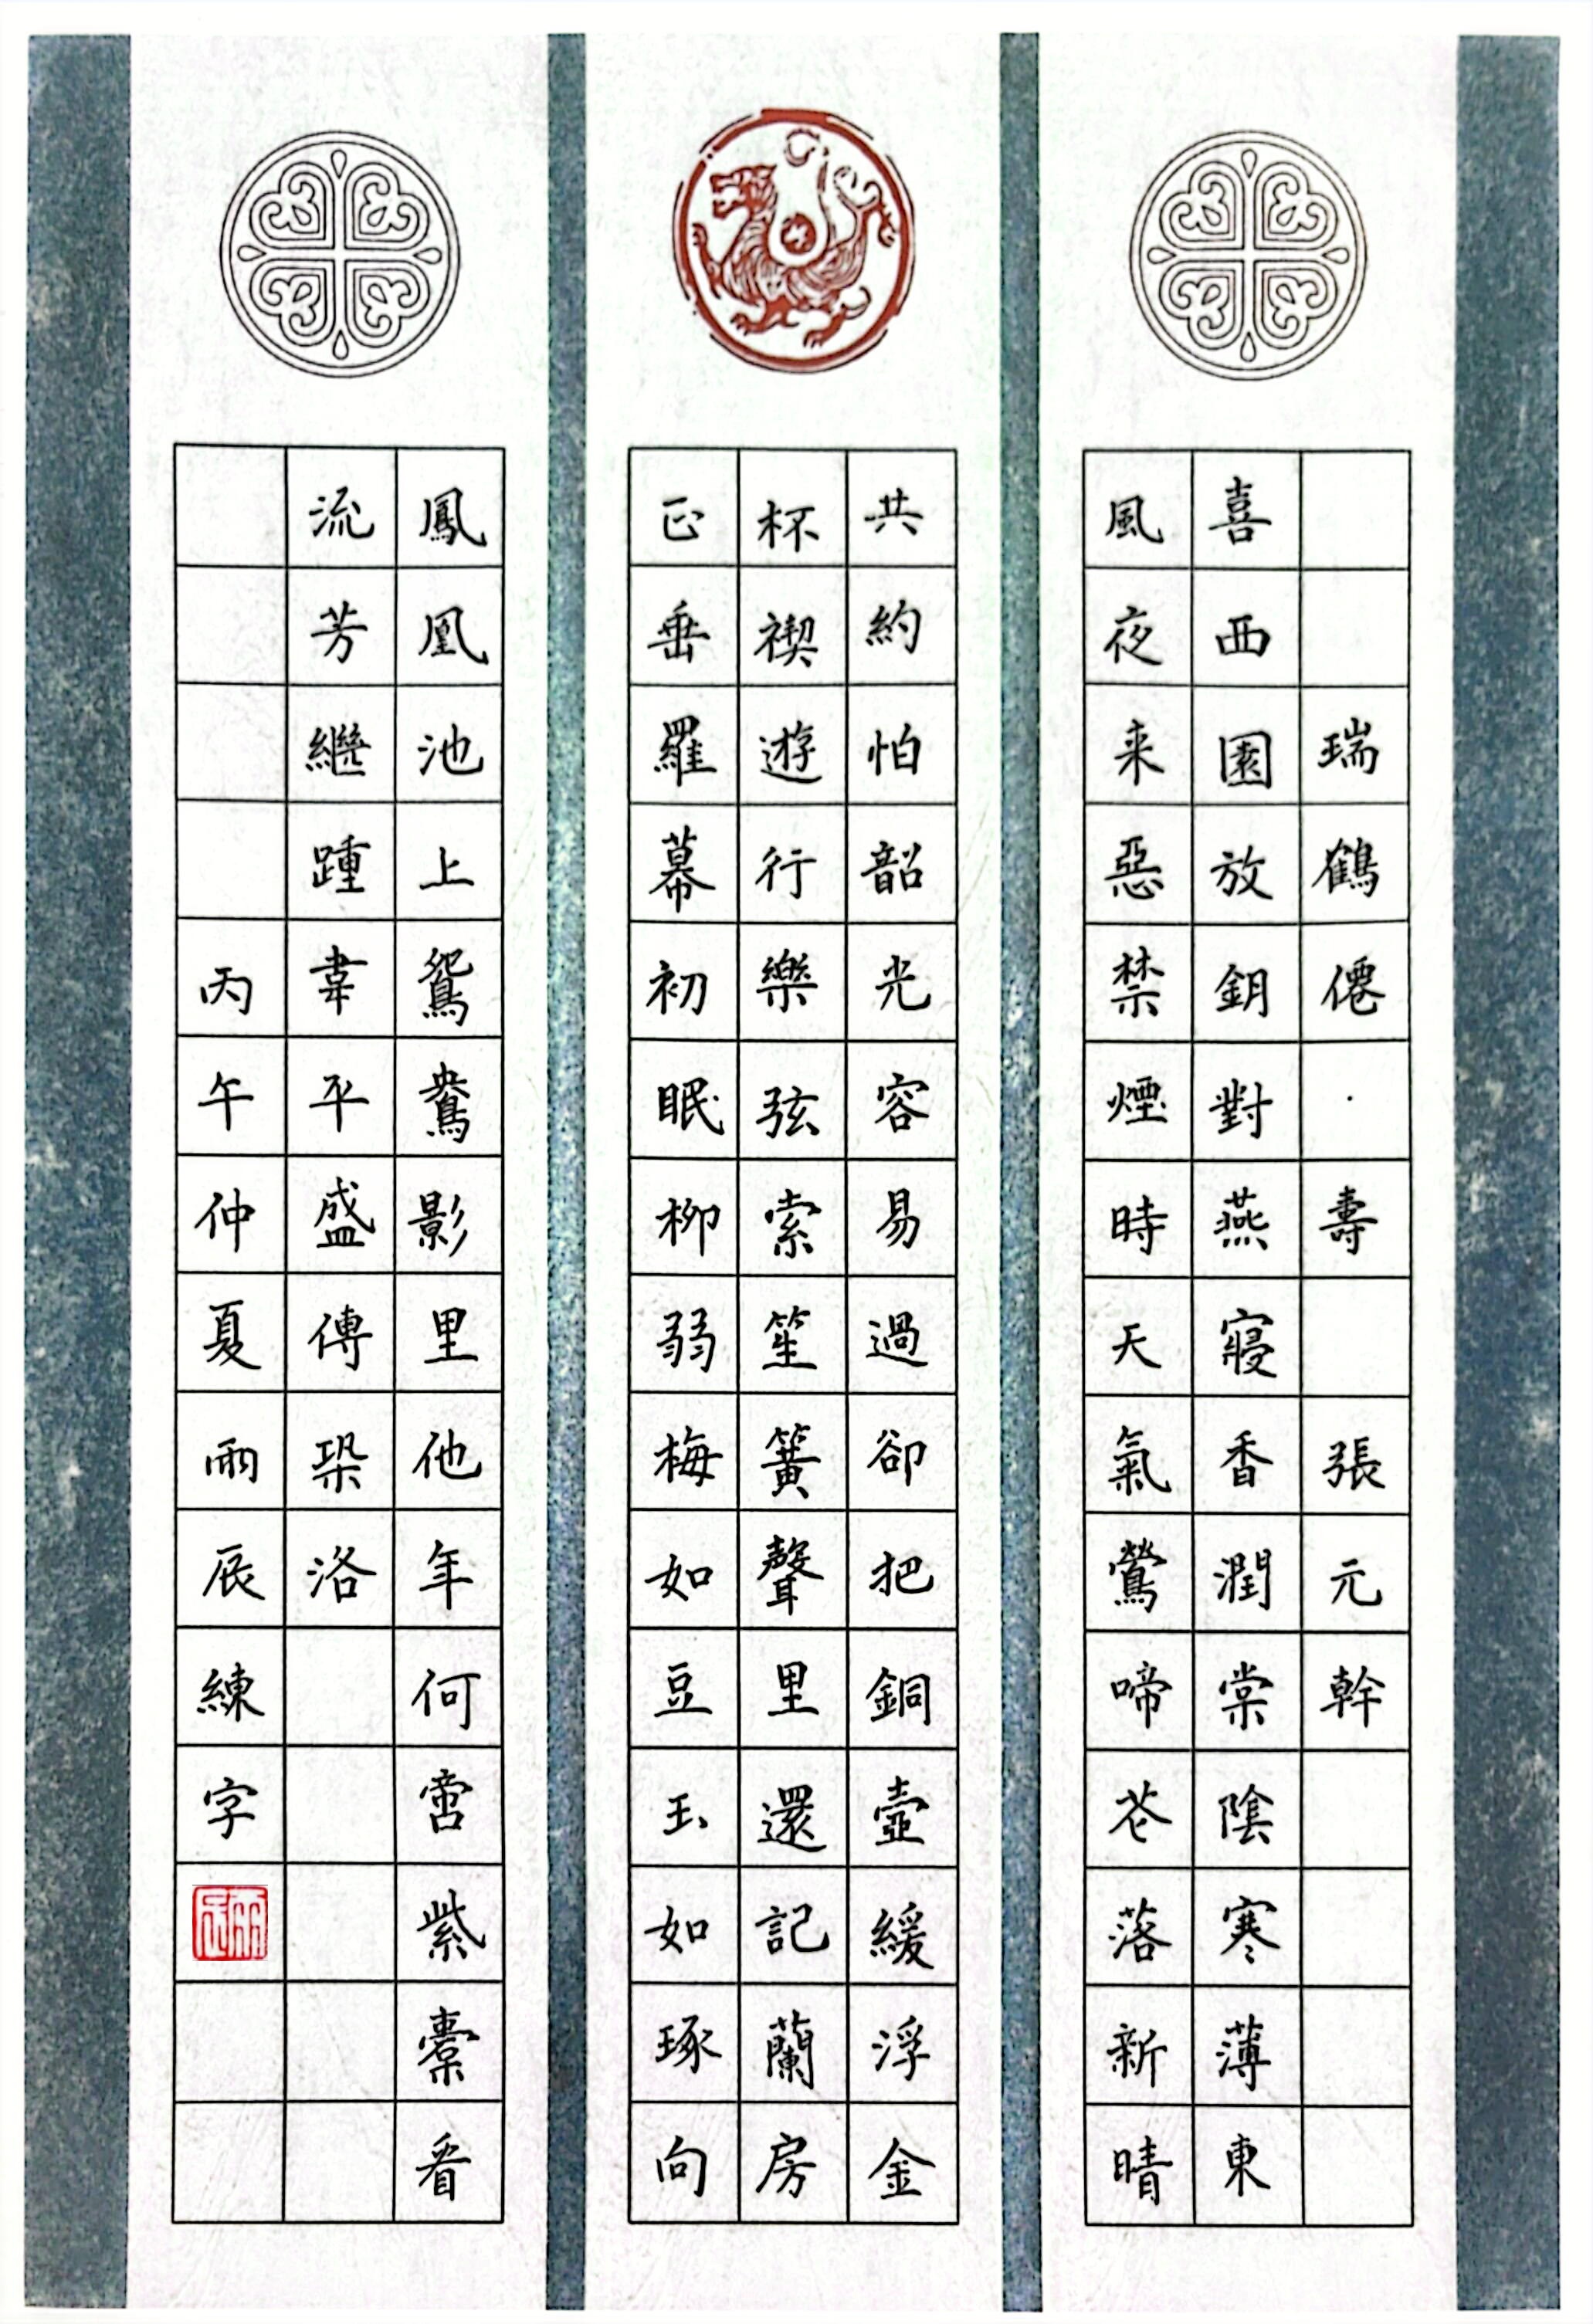 瑞鶴僊·壽 張元幹
喜西園放鈅對燕寢香潤棠陰寒薄東
風夜来惡禁煙時天氣鶯啼苍落新晴
共約怕韶光容易過卻把銅壺緩浮金
杯禊遊行樂弦索笙簧聲里還記蘭房
正垂羅幕初眠柳弱梅如豆玉如琢向
鳳凰池上鴛鴦影里他年何啻紫橐看
流芳繼踵韋平盛傳梁洛
丙午仲夏雨辰練字
雨辰